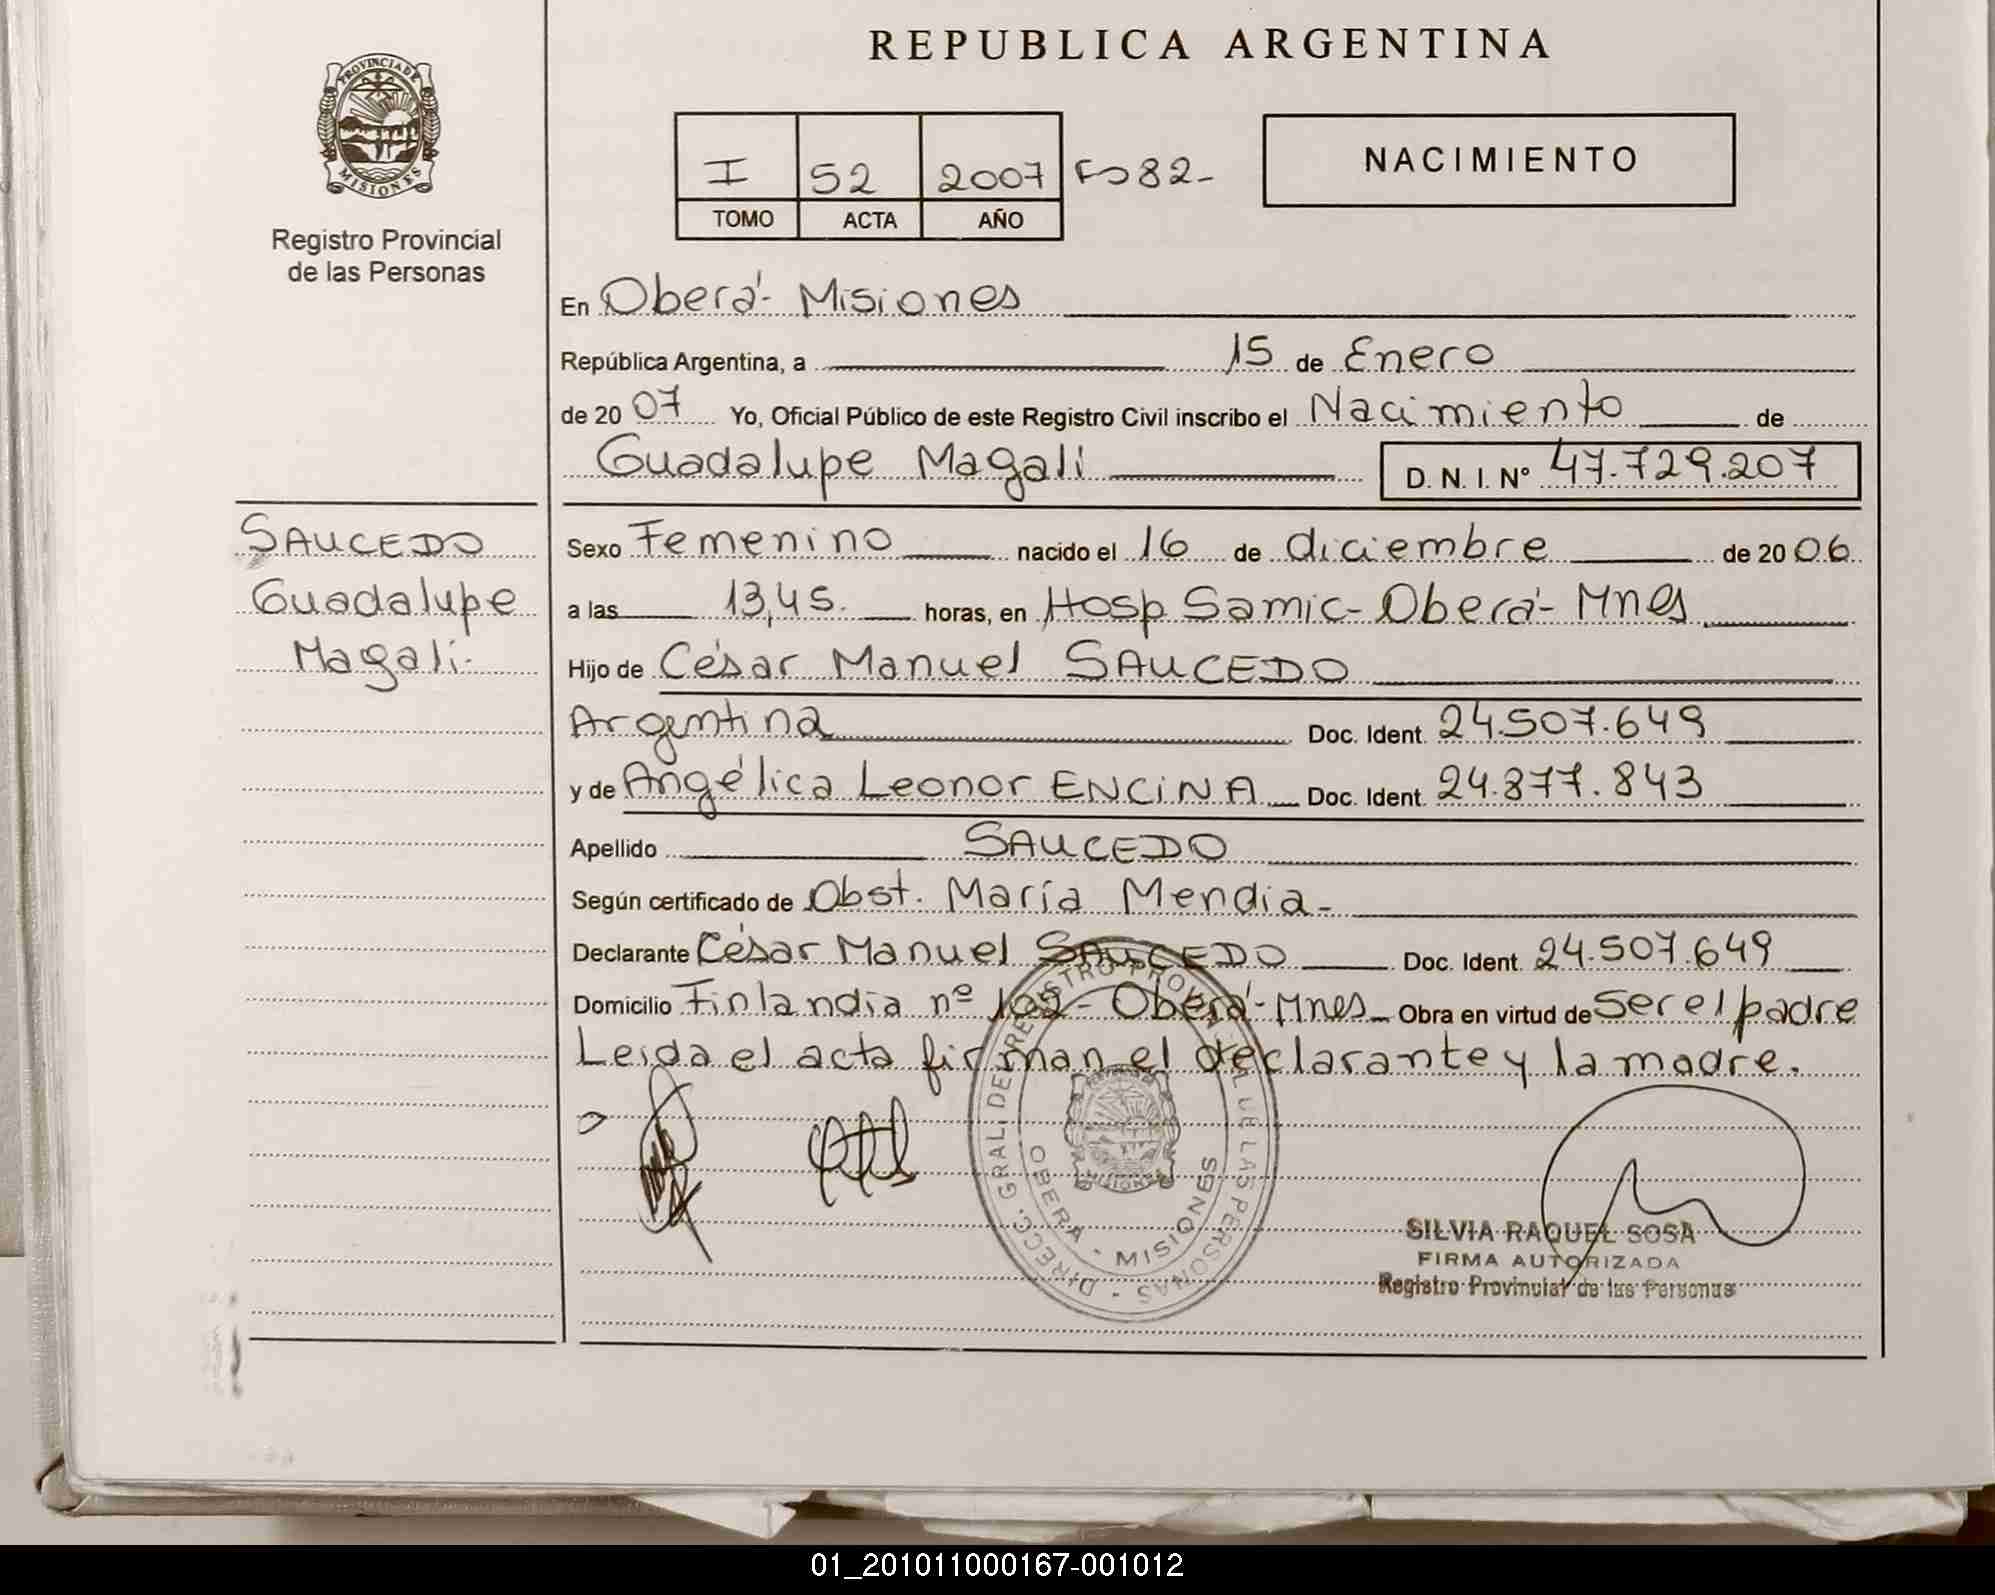 REPUBLICA ARGENTINA
PROVINCIA DE
MISIONES
Registro Provincial
de las Personas
I 52 2007 Fº 82-
TOMO ACTA AÑO
NACIMIENTO
En Oberá- Misiones
República Argentina, a 15 de Enero
de 2007 Yo, Oficial Público de este Registro Civil inscribo el Nacimiento de
Guadalupe Magali D. N. I. Nº 47.729.207
SAUCEDO
Guadalupe
Magali-
Sexo Femenino nacido el 16 de diciembre de 2006
a las 13,45. horas, en Hosp Samic- Oberá- Mnes
Hijo de César Manuel SAUCEDO
Argentina Doc. Ident. 24.507.649
y de Angélica Leonor ENCINA Doc. Ident. 24.877.843
Apellido SAUCEDO
Según certificado de Obst. María Mendia-
Declarante César Manuel SAUCEDO Doc. Ident. 24.507.649
Domicilio Finlandia nº 102- Oberá- Mnes Obra en virtud de ser el padre
Leida el acta firman el declarante y la madre.
DIRECC. GRAL. DEL REGISTRO PROVINCIAL DE LAS PERSONAS
OBERA - MISIONES
MISIONES
SILVIA RAQUEL SOSA
FIRMA AUTORIZADA
Registro Provincial de las Personas
01_201011000167-001012